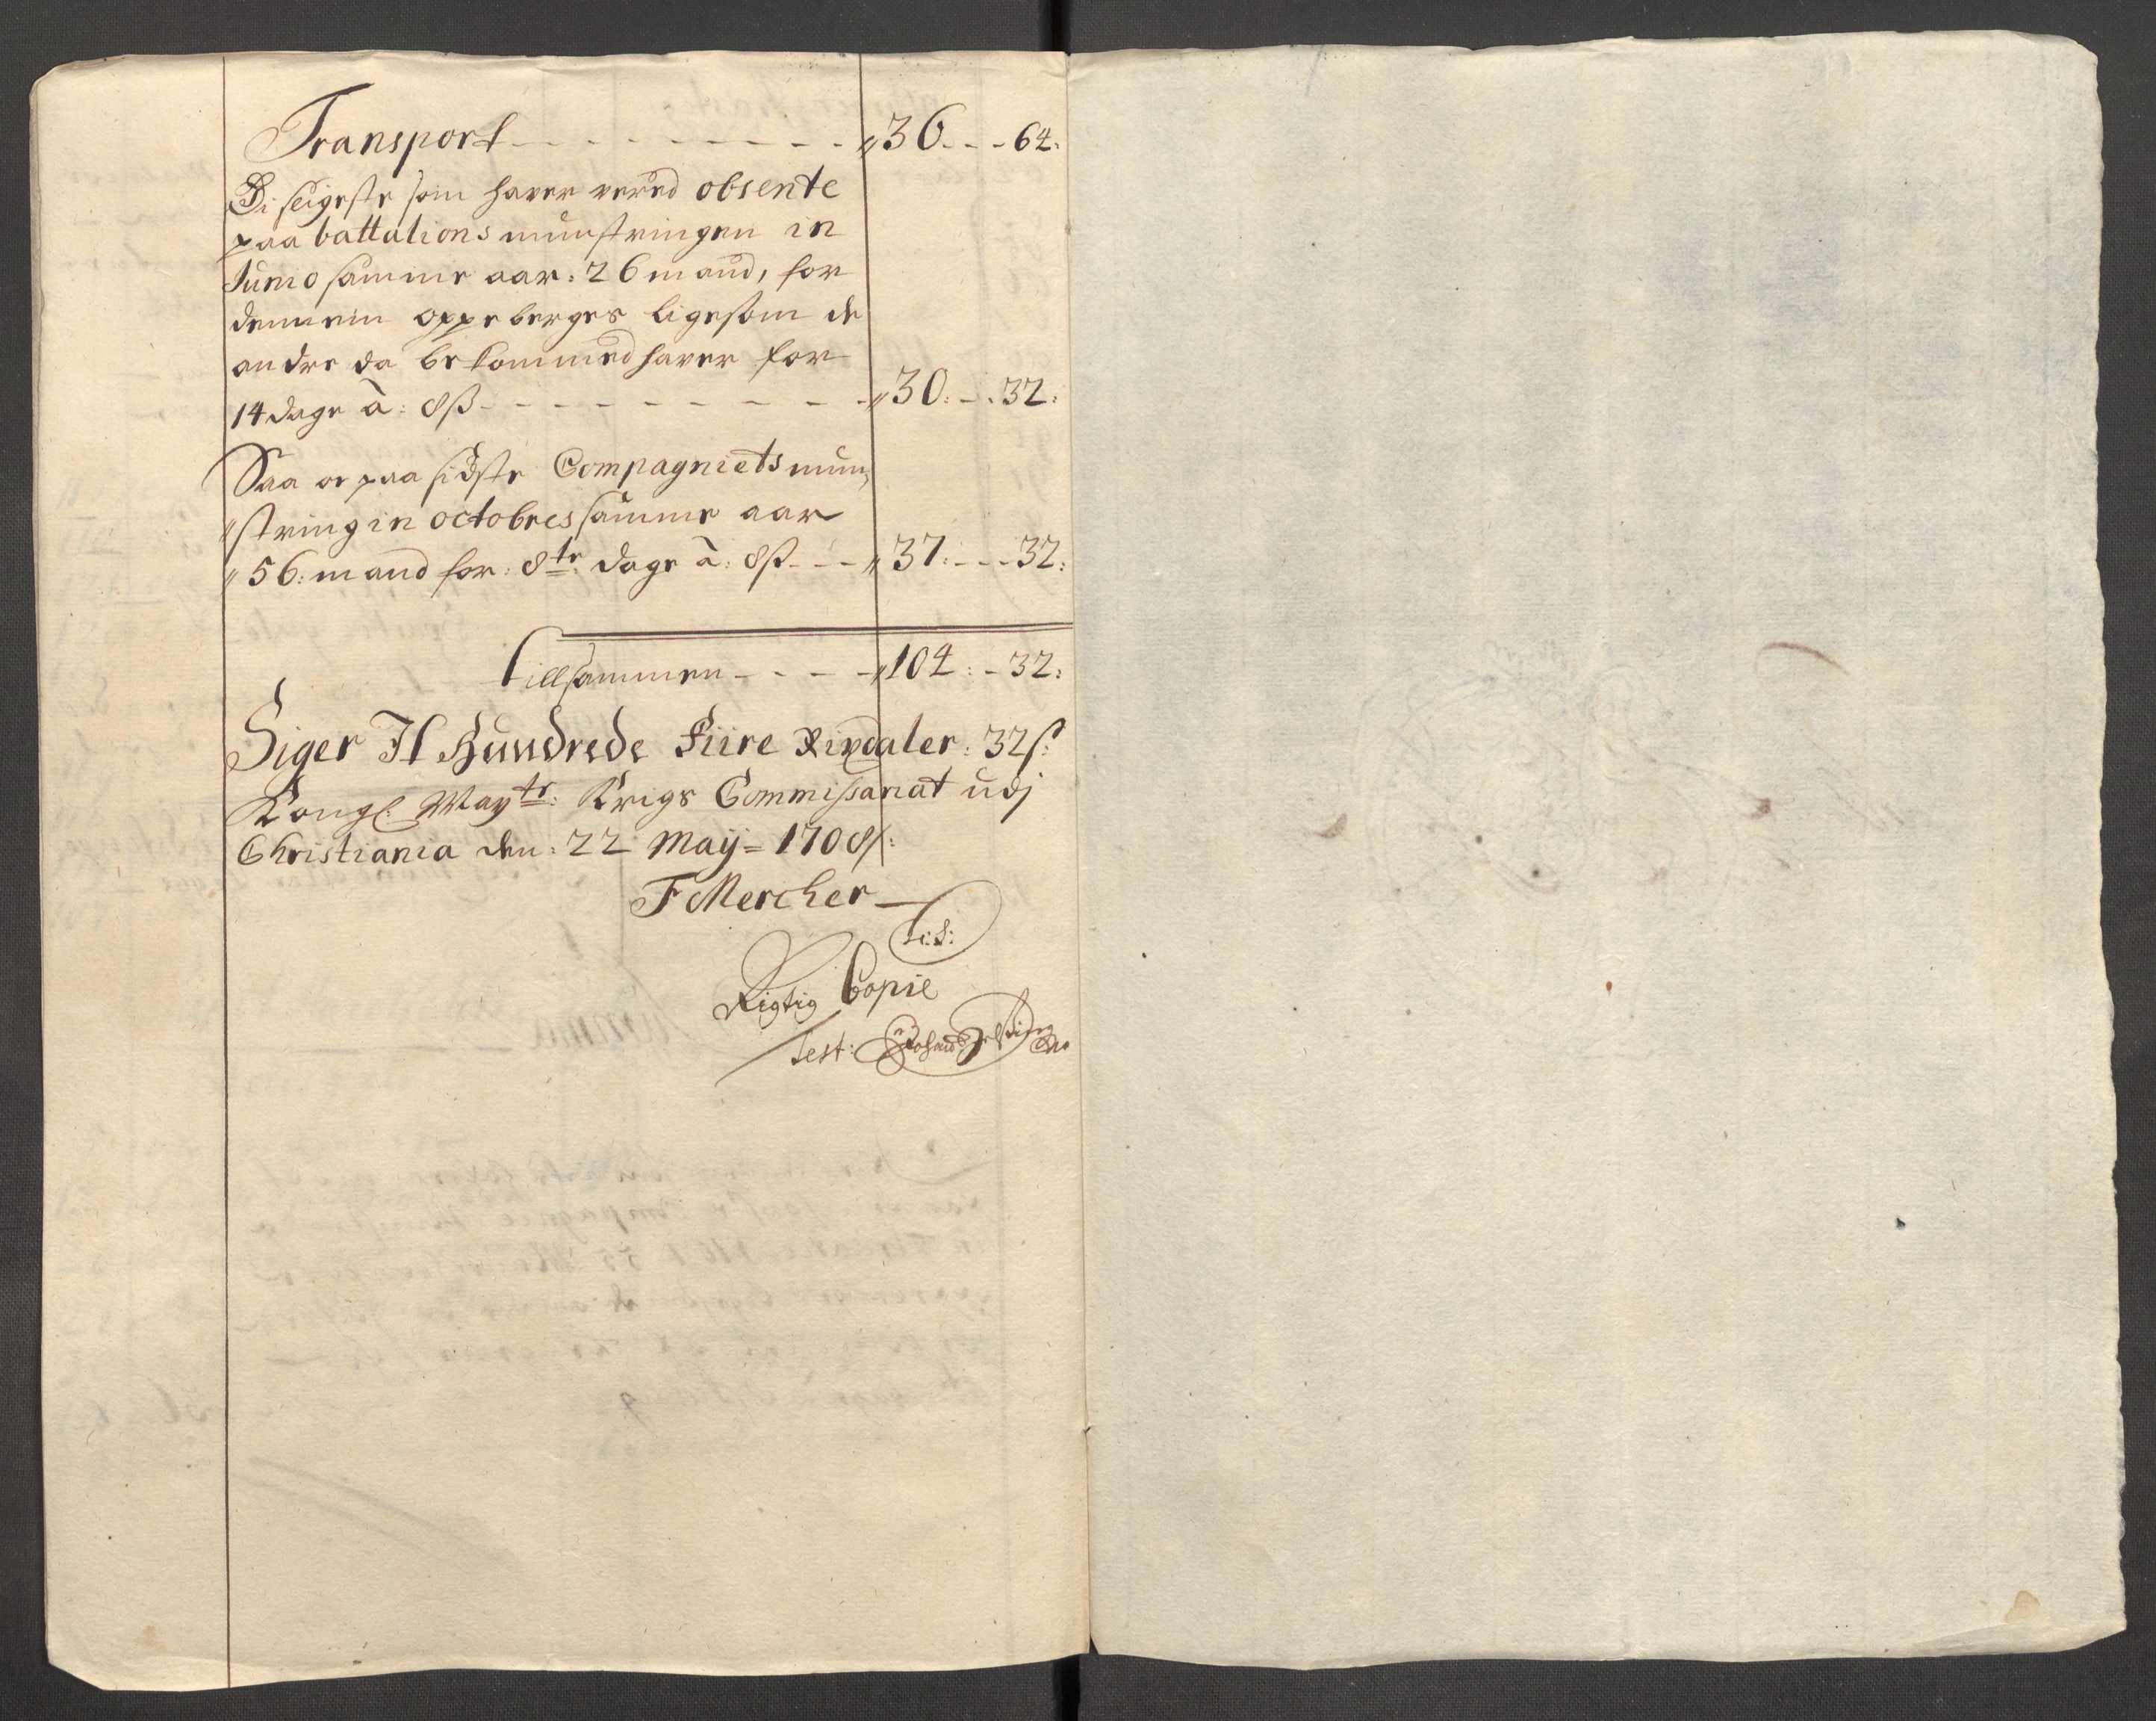 Transport - - - - - - - - - 〃36 - - - 64:
Di seigeste som hafver vered obsente
paa battalions munstringen in
Junio samme aar: 26 mand, for
dennem oppeberges ligesom de
andre da bekommed hafver for
14 dage à: 8ß - - - - - - - - - 〃30: - - 32:
Saa oc paa sidste Compagniets mun,
〃string in octobres samme aar
〃56: mand for: 8te dage à: 8ß - - - 〃37: - - - 32:
Tillsammen - - - - 〃104: - 32:
Siger It Hundrede Fiire Rixdaler: 32ß:
Kongl: Maytz: Krigs Commissariat udj
Christiania den: 22 Maÿ = 1708/:
F Mercker
L: S:
Rigtig Copie
Test: